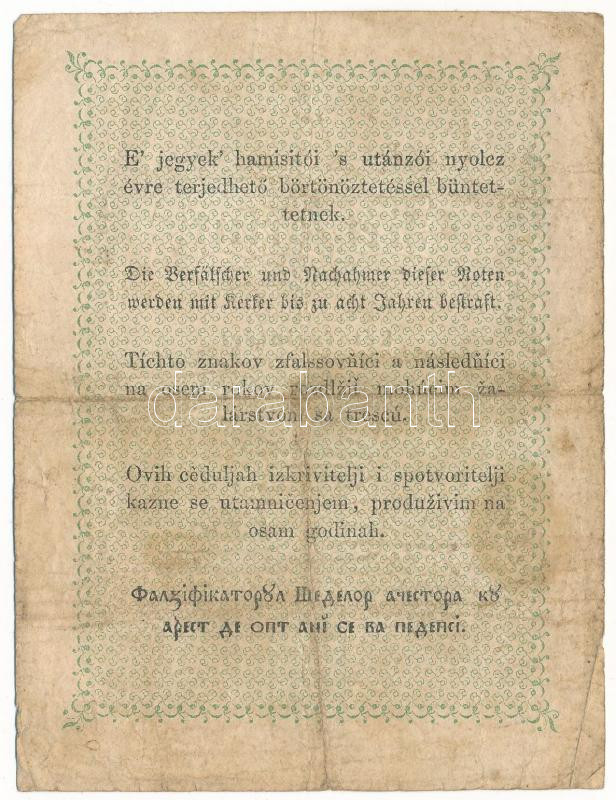 E' jegyek' hamisitói 's utánzói nyolcz
évre terjedhető börtönöztetéssel büntet-
tetnek.
Die Verfälscher und Nachahmer dieser Noten
werden mit Kerker bis zu acht Jahren bestraft.
Tíchto znakov zfalssovňíci a následňíci
na osem rokov mohúcim ža-
lárstvom sa trescú.
Ovih cĕduljah izkrivitelji i spotvoritelji
kazne se utamničenjem, produživim na
osam godinah.
Фалѕіфікаторꙋл Шеделор ачестора кꙋ
арест де опт анї се ва педепсі.
darabanth